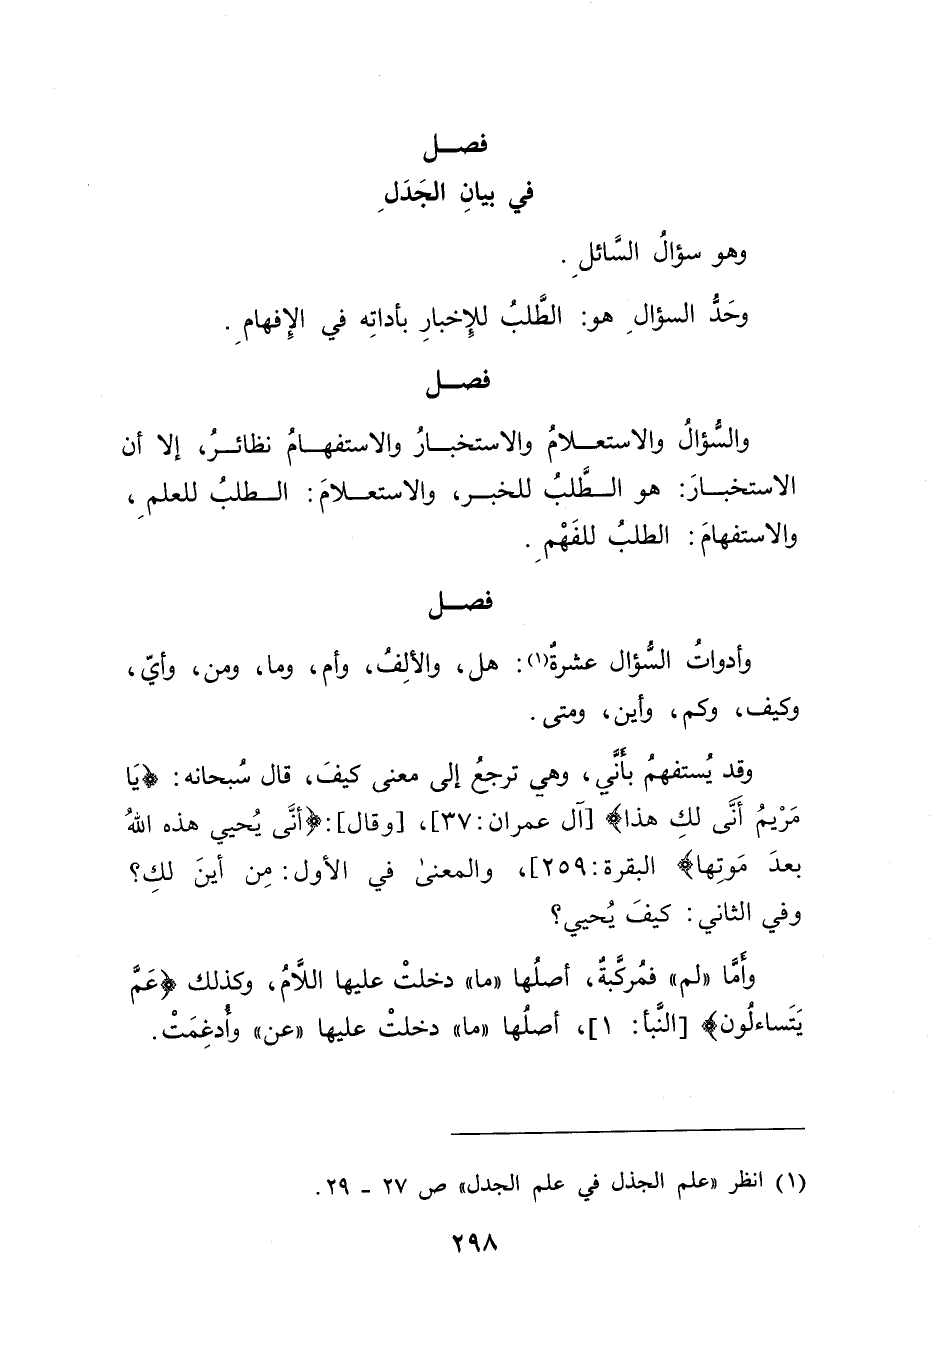 فصـــل
في بيانِ الجَدَلِ
وهو سؤالُ السَّائلِ.
وحَدُّ السؤالِ هو: الطَّلبُ للإِخبارِ بأداتِه في الإِفهامِ.
فصـــل
والسُّؤالُ والاستعـلامُ والاستخبـارُ والاستفهـامُ نظائـرُ، إلا أن
الاستخبـارَ: هو الـطَّلبُ للخبـر، والاستعـلامَ: الـطلبُ للعلمِ،
والاستفهامَ: الطلبُ للفَهْمِ.
فصـــل
وأدواتُ السُّؤال عشرةٌ(١): هل، والألِفُ، وأم، وما، ومن، وأيّ،
وكيف، وكم، وأين، ومتى.
وقد يُستفهمُ بأَنَّي، وهي ترجعُ إلى معنى كيفَ، قال سُبحانه: ﴿يَا
مَرْيمُ أَنَّى لكِ هذا﴾ [آل عمران:٣٧]، [وقال]:﴿أنَّى يُحيي هذه اللهُ
بعدَ مَوتِها﴾ البقرة:٢٥٩]، والمعنىٰ في الأول: مِن أينَ لكِ؟
وفي الثاني: كيفَ يُحيي؟
وأَمَّا «لم» فمُركَّبةٌ، أصلُها «ما» دخلتْ عليها اللَّامُ، وكذلك ﴿عَمَّ
يَتَساءلُون﴾ [النَّبأ: ١]، أصلُها «ما» دخلتْ عليها «عن» وأُدغِمَتْ.
(١) انظر «علم الجذل في علم الجدل» ص ٢٧ ـ ٢٩.
٢٩٨